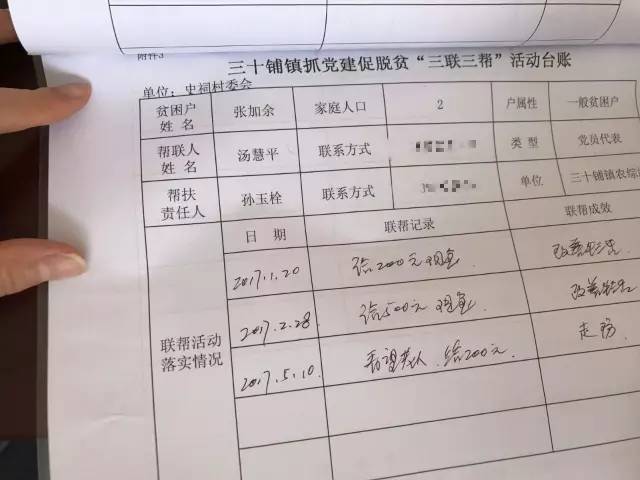 附件3
三十铺镇抓党建促脱贫“三联三帮”活动台账
单位：史祠村委会
贫困户姓名 张加余 家庭人口 2 户属性 一般贫困户
帮联人姓名 汤慧平 联系方式 类型 党员代表
帮扶责任人 孙玉栓 联系方式 单位 三十铺镇农综
联帮活动落实情况 日期 联帮记录 联帮成效
2017.1.20 给200元现金 改善生活
2017.2.28 给500元现金 改善生活
2017.5.10. 看望老人 给200元. 走访